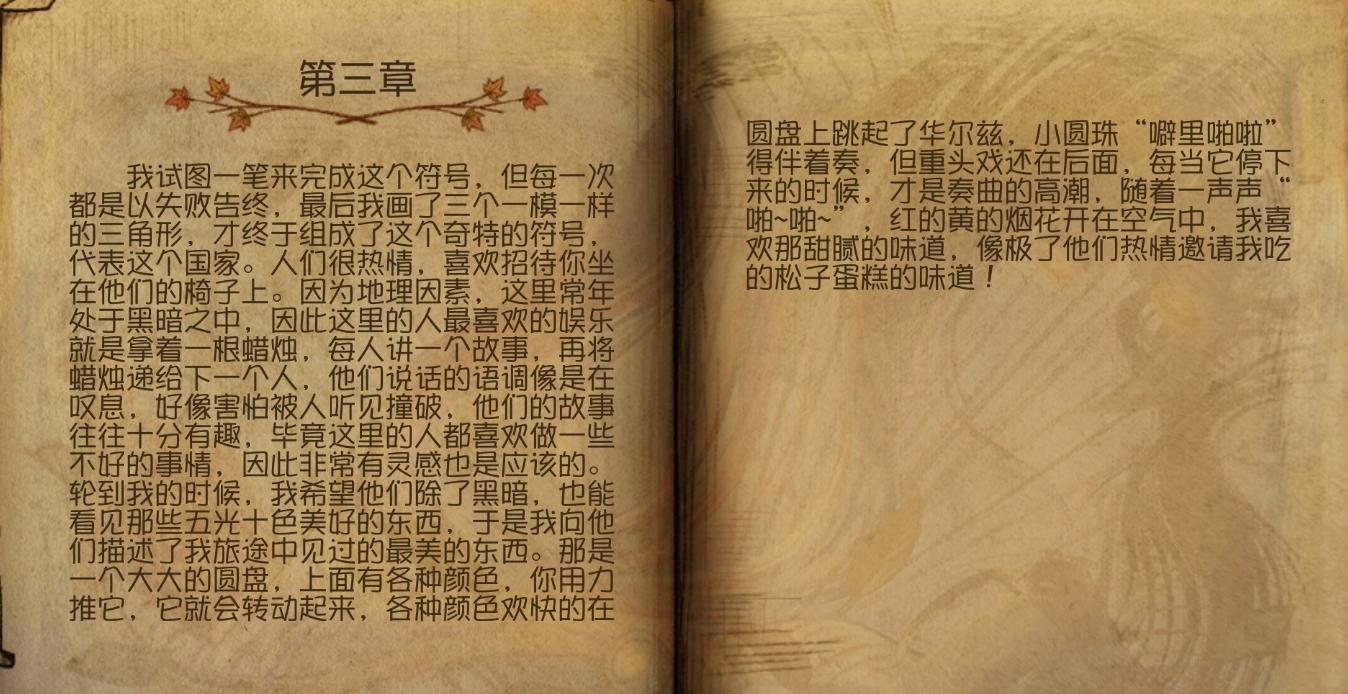 第三章
我试图一笔来完成这个符号，但每一次
都是以失败告终，最后我画了三个一模一样
的三角形，才终于组成了这个奇特的符号，
代表这个国家。人们很热情，喜欢招待你坐
在他们的椅子上。因为地理因素，这里常年
处于黑暗之中，因此这里的人最喜欢的娱乐
就是拿着一根蜡烛，每人讲一个故事，再将
蜡烛递给下一个人，他们说话的语调像是在
叹息，好像害怕被人听见撞破，他们的故事
往往十分有趣，毕竟这里的人都喜欢做一些
不好的事情，因此非常有灵感也是应该的。
轮到我的时候，我希望他们除了黑暗，也能
看见那些五光十色美好的东西，于是我向他
们描述了我旅途中见过的最美的东西。那是
一个大大的圆盘，上面有各种颜色，你用力
推它，它就会转动起来，各种颜色欢快的在
圆盘上跳起了华尔兹，小圆珠“噼里啪啦”
得伴着奏，但重头戏还在后面，每当它停下
来的时候，才是奏曲的高潮，随着一声声“
啪~啪~”，红的黄的烟花开在空气中，我喜
欢那甜腻的味道，像极了他们热情邀请我吃
的松子蛋糕的味道！